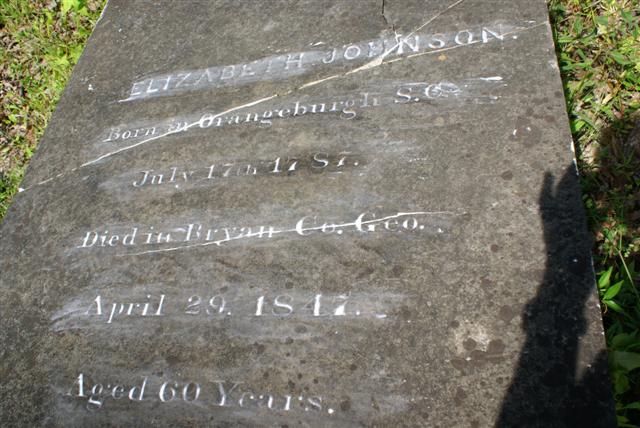 ELIZABETH JOHNSON.
Born in Orangeburgh S.C.
July 17th 1787.
Died in Bryan Co. Geo.
April 29. 1847.
Aged 60 Years.